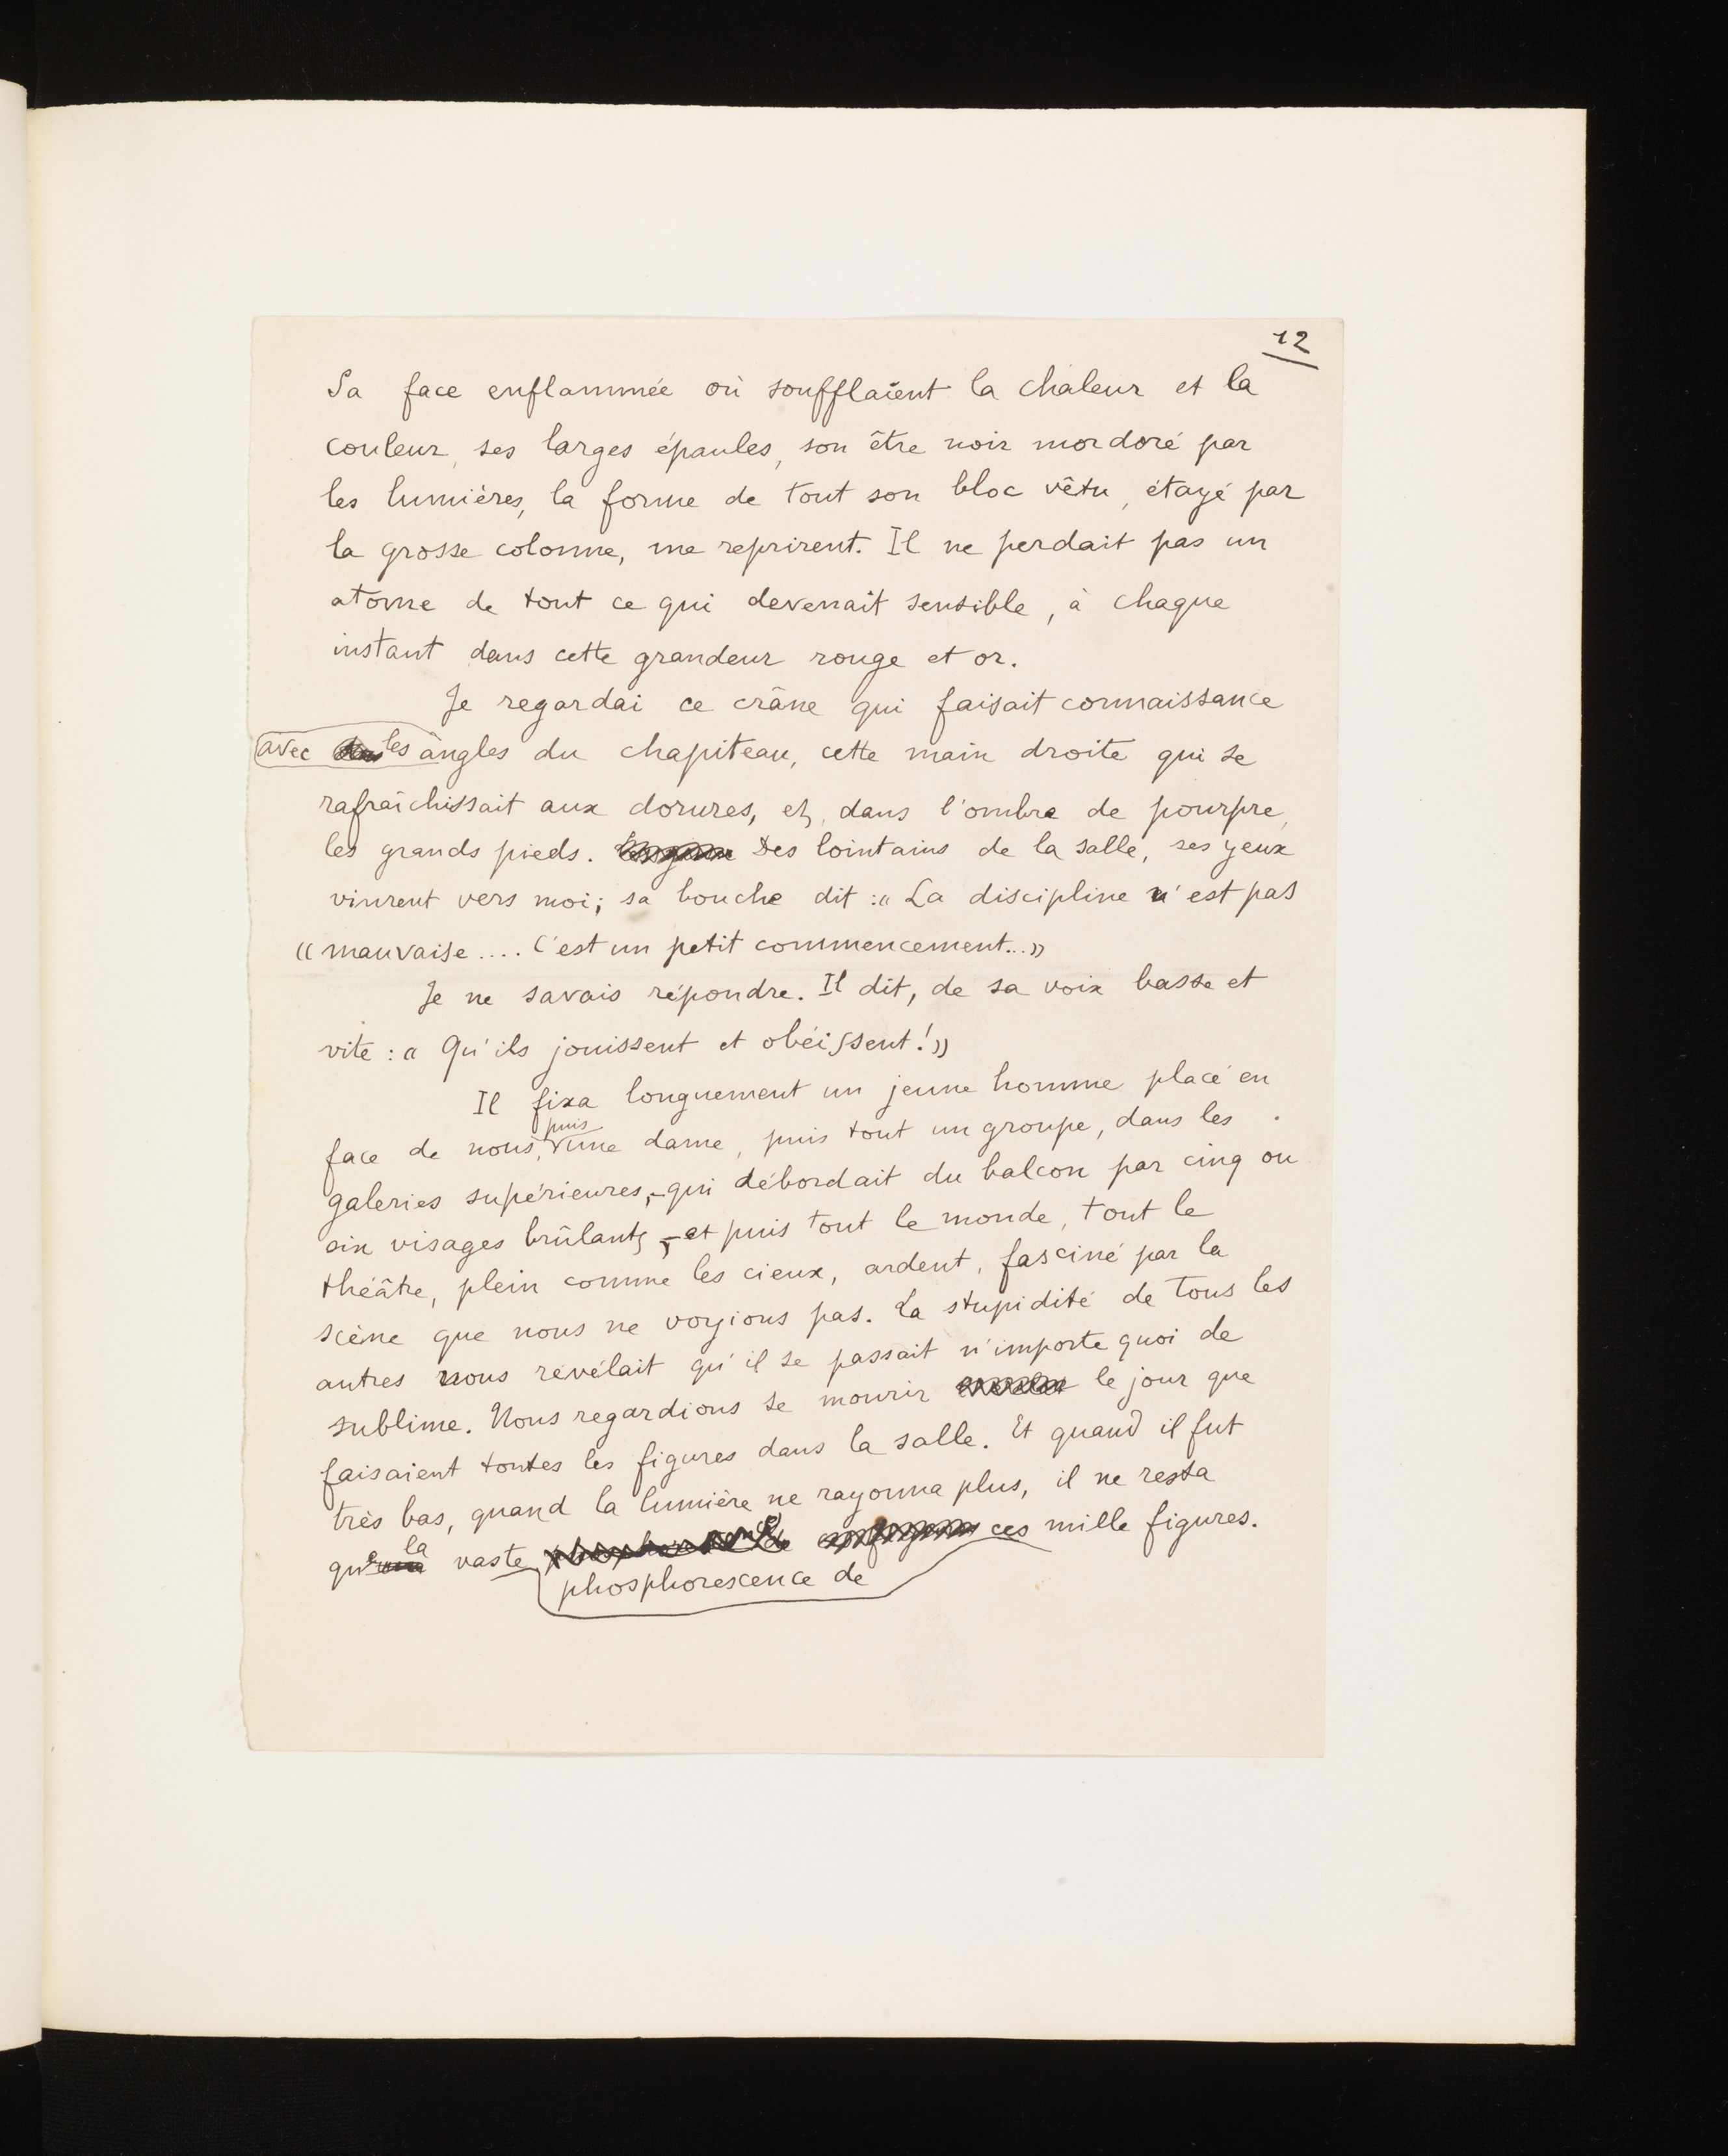 12
Sa face enflammée où soufflaient la chaleur et la
couleur, ses larges épaules, son être noir mordoré par
les lumières, la forme de tout son bloc vêtu, étayé par
la grosse colonne, me reprirent. Il ne perdait pas un
atome de tout ce qui devenait sensible, à chaque
instant dans cette grandeur rouge et or.
Je regardai ce crâne qui faisait connaissance
avec les angles du chapiteau, cette main droite qui se
rafraîchissait aux dorures, et, dans l'ombre de pourpre,
les grands pieds. Des lointains de la salle, ses yeux
vinrent vers moi; sa bouche dit : « La discipline n'est pas
« mauvaise .... C'est un petit commencement... »
Je ne savais répondre. Il dit, de sa voix basse et
vite : « Qu'ils jouissent et obéissent ! »
Il fixa longuement un jeune homme placé en
face de nous, puis une dame, puis tout un groupe, dans les
galeries supérieures, - qui débordait du balcon par cinq ou
six visages brûlants, - et puis tout le monde, tout le
théâtre, plein comme les cieux, ardent, fasciné par la
scène que nous ne voyions pas. La stupidité de tous les
autres nous révélait qu'il se passait n'importe quoi de
sublime. Nous regardions se mourir le jour que
faisaient toutes les figures dans la salle. Et quand il fut
très bas, quand la lumière ne rayonna plus, il ne resta
que la vaste phosphorescence de ces mille figures.